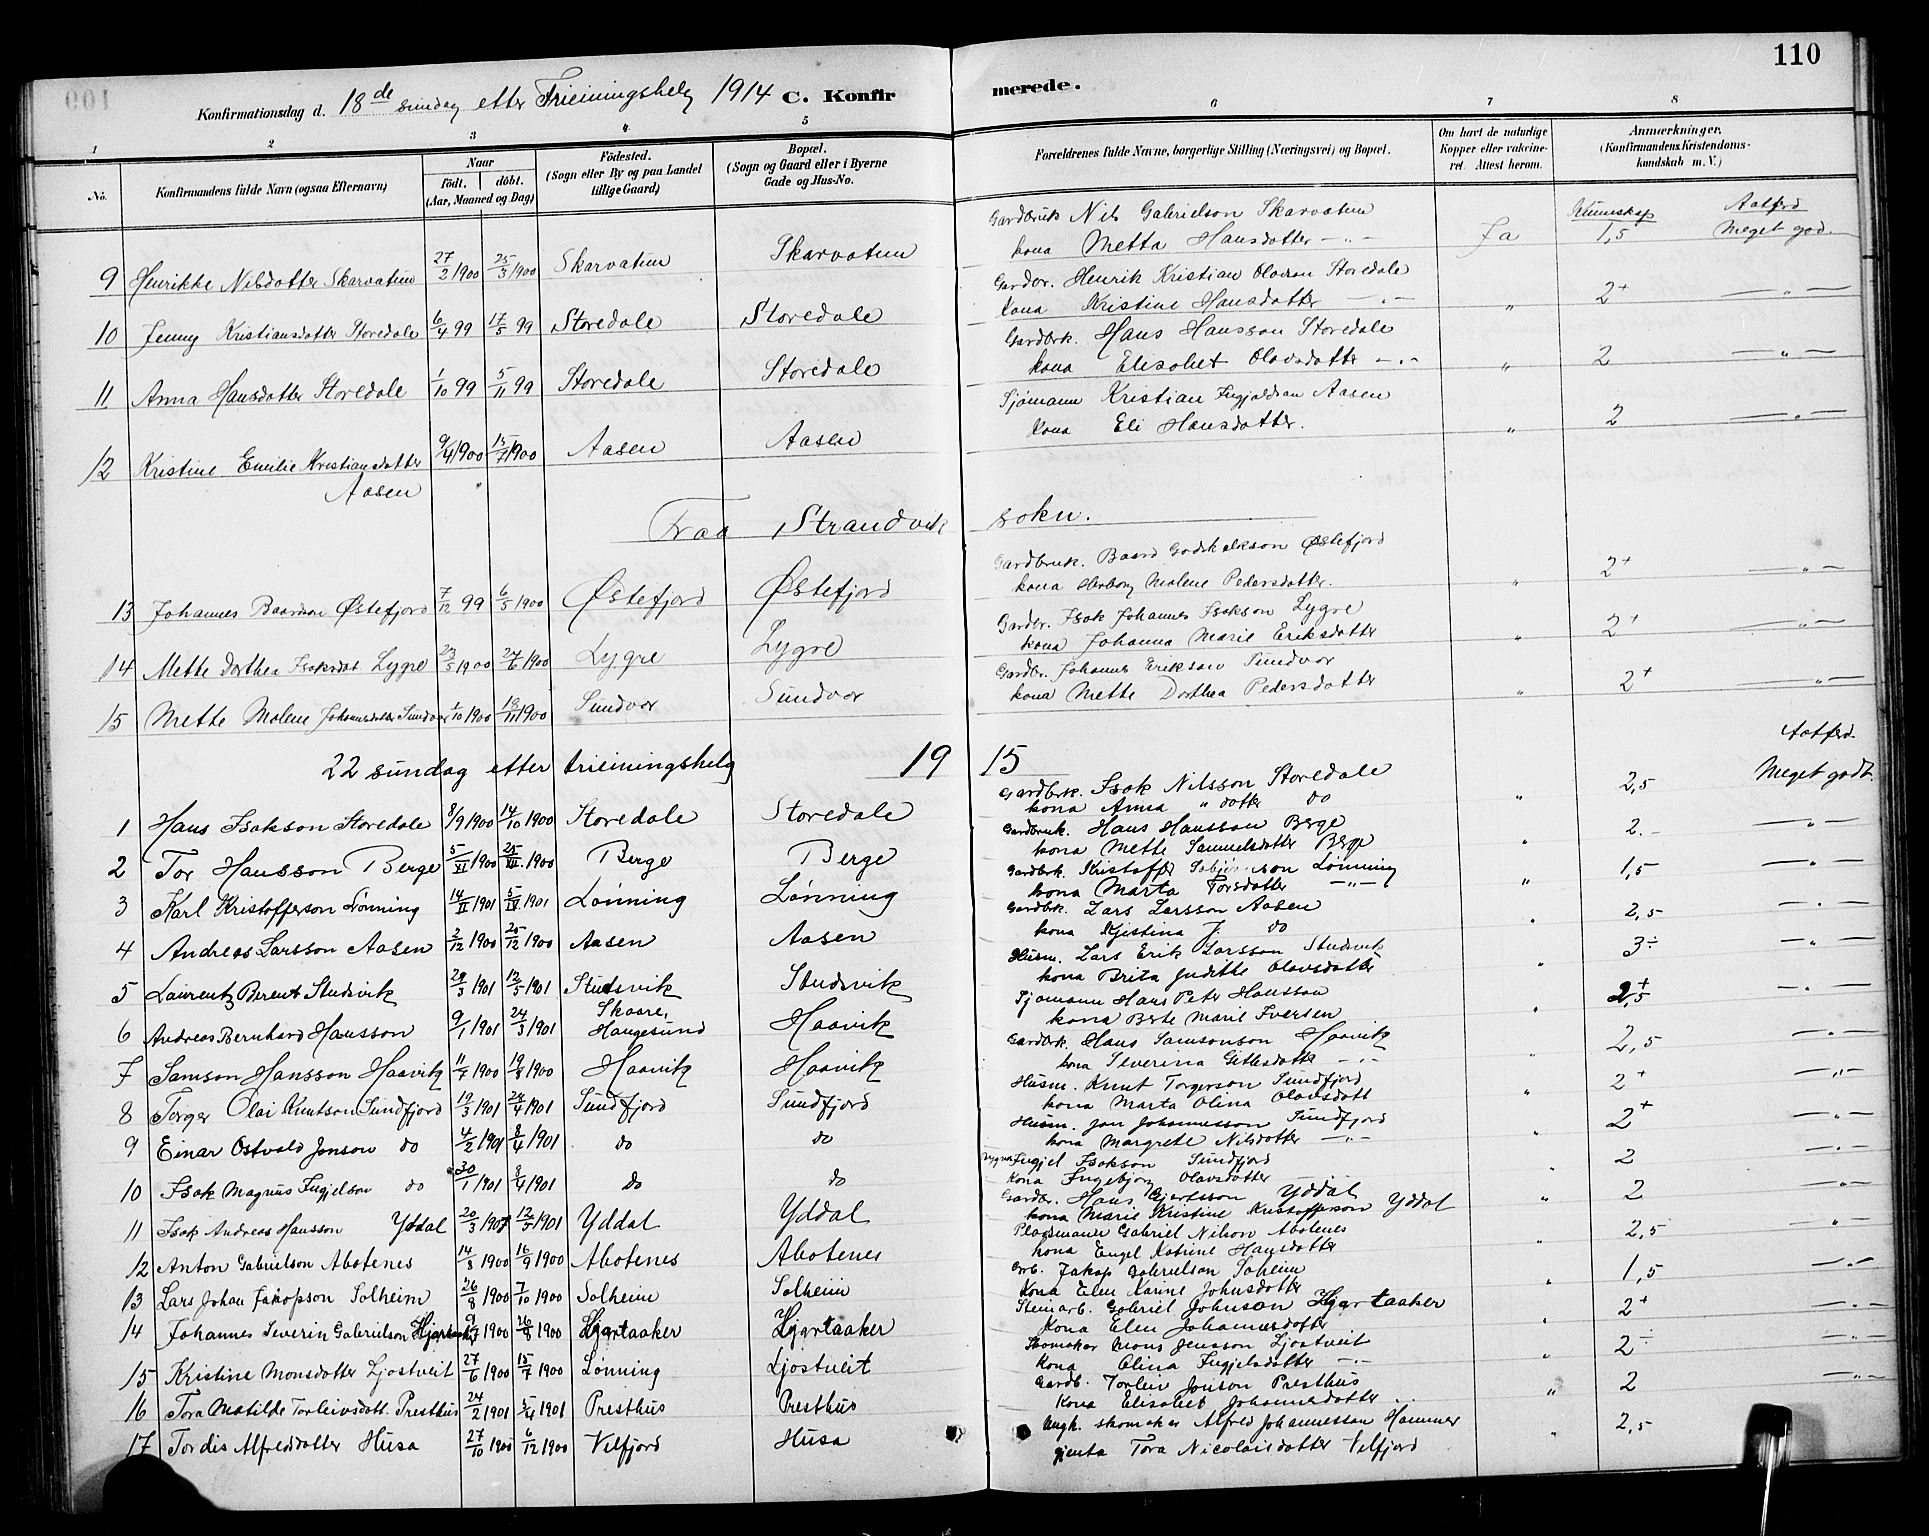 110
Konfirmationsdag d. 18de sundag etter Trieiningshelg 1914 C. Konfirmerede.
1 2 3 4 5 6 7 8
No. Konfirmandens fulde Navn (ogsaa Efternavn) Naar födt. döbt. (Aar, Maaned og Dag) Födested. (Sogn eller By og paa Landet tillige Gaard) Bopæl. (Sogn og Gaard eller i Byerne Gade og Hus-No.) Forældrenes fulde Navne, borgerlige Stilling (Næringsvei) og Bopæl. Om havt de naturlige Kopper eller vaccineret. Attest herom. Anmærkninger. (Konfirmandens Kristendomskundskab m. V.)
Kunnskap Aatferd
9 Henrikke Nilsdotter Skarvatun 27/2 1900 25/3 1900 Skarvatun Skarvatun Gardbruk Nils Gabrielson Skarvatun Ja 1,5 Meget god.
kona Metta Hansdotter —"—
10 Jenny Kristiansdotter Storedale 6/4 99 17/5 99 Storedale Storedale Gardbr. Henrik Kristian Olavson Storedale " 2+ —"—
kona Kristine Hansdotter —"—
11 Anna Hansdotter Storedale 1/10 99 5/11 99 Storedale Storedale Gardbrk. Hans Hansson Storedale " 2 —"—
kona Elisabet Olavsdotter —"—
12 Kristine Emilie Kristiansdotter Aasen 9/4 1900 15/7 1900 Aasen Aasen Sjömann Kristian Ingjaldson Aasen " 2 —"—
kona Eli Hansdotter.
Fraa Strandvik sokn.
13 Johannes Baardson Østefjord 7/12 99 6/5 1900 Østefjord Østefjord Gardbruk. Baard Godskalkson Østefjord " 2+ —"—
kona Herborg Malene Pedersdotter.
14 Mette Dorthea Isaksdot. Lygre 23/5 1900 24/6 1900 Lygre Lygre Gardbr. Isak Johannes Isakson Lygre " 2+ —"—
kona Johanna Marie Eriksdotter
15 Mette Malene Johannsdotter Sundvor 1/10 1900 18/11 1900 Sundvor Sundvor Gardbr. Johannes Erikson Sundvor " 2+ —"—
kona Mette Dorthea Pedersdotter
22 sundag etter trieiningshelg 1915
Aatferd.
1 Hans Isakson Storedale 8/9 1900 14/10 1900 Storedale Storedale Gardbrk. Isak Nilsson Storedale " 2,5 Meget godt.
kona Anna " dotter do
2 Tor Hansson Berge 5/XI 1900 25/XII 1900 Berge Berge Gardbruk. Hans Hansson Berge " 2.- —"—
kona Mette Samuelsdotter Berge
3 Karl Kristofferson Lønning 14/II 1901 5/IV 1901 Lønning Lønning Gardbrk. Kristoffer Lønning " 1,5 —"—
kona Marta Torsdotter —"—
4 Andreas Larsson Aasen 2/12 1900 25/12 1900 Aasen Aasen Gardbrk. Lars Larsson Aasen " 2,5 —"—
kona Kjistina J. do
5 Laurentz Berent Studsvik 29/3 1901 12/5 1901 Studsvik Studsvik Husm. Lars Erik Larsson Studsvik " 3÷ —"—
kona Brita Juditte Olavsdotter
6 Andreas Bernhard Hansson 9/1 1901 24/3 1901 Skaare, Haugesund Haavik Sjömann Hans Peter Hansson " —"—
kona Berte Marie Iversen
7 Samson Hansson Haavik 11/7 1900 19/8 1900 Haavik Haavik Gardbrk. Hans Samsonson Haavik " 2,5 —"—
kona Severina Gitlesdotter —"—
8 Torger Olai Knutson Sundfjord 19/3 1901 28/4 1901 Sundfjord Sundfjord Husm. Knut Torgerson Sundfjord " 2+ —"—
kona Marta Olina Olavsdott
9 Einar Ostvald Jonson do 4/2 1901 8/4 1901 do do Husm. Jon Johannesson Sundfjord " 2+ —"—
kona Margrete Nilsdotter —"—
10 Isak Magnus Ingjelson do 30/1 1901 8/4 1901 do do Ingjel Isakson Sundfjord " 2 —"—
kona Ingebjørg Olavsdotter
11 Isak Andreas Hansson Yddal 20/3 1901 12/5 1901 Yddal Yddal Gardbr. Hans Gjertsson Yddal " 2
kona Marie Kristine Kristofferson Yddal
12 Anton Gabrielson Abotenes 14/8 1900 16/9 1900 Abotenes Abotenes Plassmann Gabriel Nilson Abotenes " 2,5 —"—
kona Engel Katrine Hansdotter
13 Lars Johan Jakopson Solheim 26/8 1900 7/10 1900 Solheim Solheim Grb. Jakop Gabrielson Solheim " 1,5
kona Elen Karine Johnsdotter
14 Johannes Severin Gabrielson Hjartaaker 1900 26/8 1900 Hjartaaker Hjartaaker Steinarb. Gabriel Johnson Hjartaaker " 2+ —"—
kona Elen Johannesdotter
15 Kristine Monsdotter Ljostveit 27/6 1900 15/7 1900 Lønning Ljostveit Skomakar Mons Jensson Ljostveit " 2÷ —"—
kona Olina Ingjelsdotter —"—
16 Tora Matilde Torleivsdott. Presthus 24/2 1901 5/4 1901 Presthus Presthus Gardb. Torleiv Jonson Presthus " 2 —"—
kona Elisabet Johannesdotter ...
17 Tordis Alfredsdotter Husa 27/10 1900 6/12 1900 Velfjord Husa Ungk. skomaker Alfred Johannesson Hammer " 2,5
gjenta Tora Nicolaisdotter Velfjord